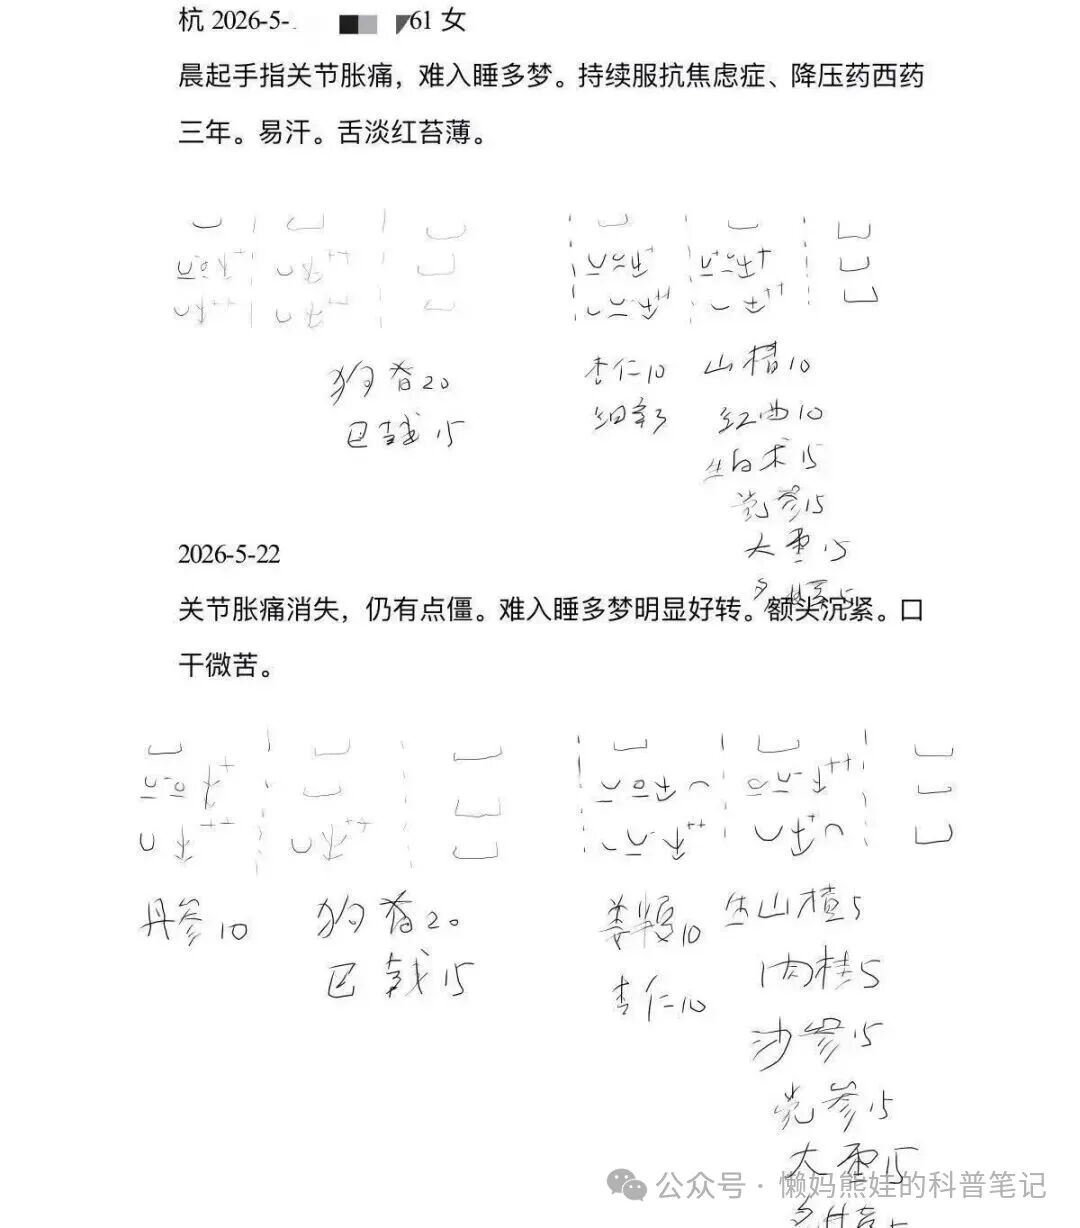 杭 2026-5- 61 女
晨起手指关节胀痛，难入睡多梦。持续服抗焦虑症、降压药西药
三年。易汗。舌淡红苔薄。
狗脊20
巴戟15
杏仁10
细辛3
山楂10
红曲10
生白术15
党参15
大枣15
2026-5-22
关节胀痛消失，仍有点僵。难入睡多梦明显好转。额头沉紧。口
干微苦。
丹参10
狗脊20
巴戟15
姜半夏10
杏仁10
生山楂5
肉桂5
沙参15
党参15
大枣15
公众号 · 懒妈熊娃的科普笔记